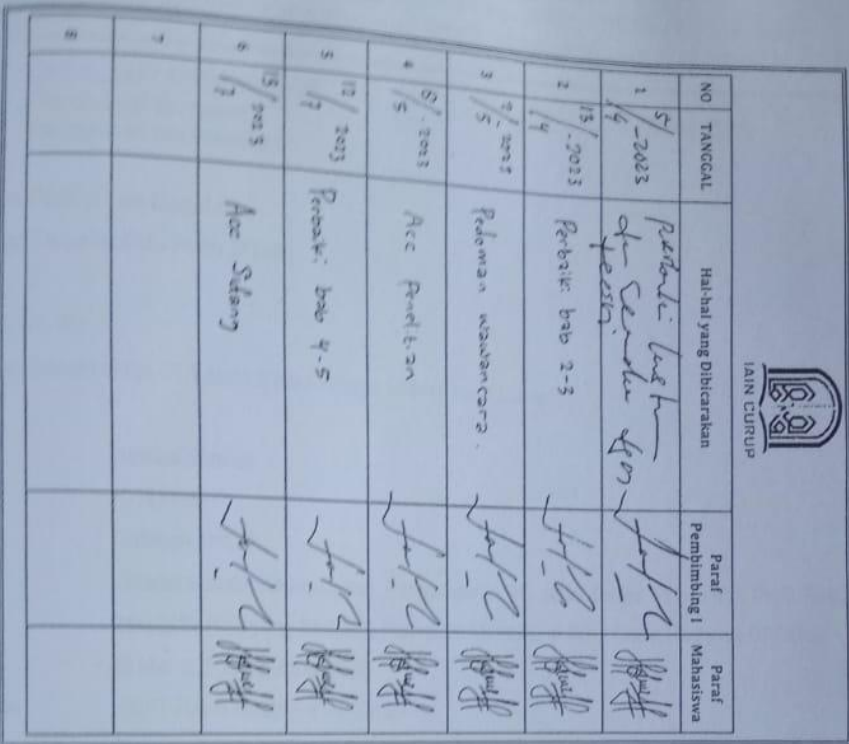 IAIN CURUP
NO TANGGAL Hal-hal yang Dibicarakan Paraf Pembimbing I Paraf Mahasiswa
1 5/4 - 2023 perbaiki
2 13/4 - 2023 Perbaiki bab 2-3
3 2/5 - 2023 Pedoman wawancara.
4 8/5 - 2023 Acc Penelitian
5 12/7 2023 Perbaiki bab 4-5
6 13/7 2023 Acc Sidang
7
8